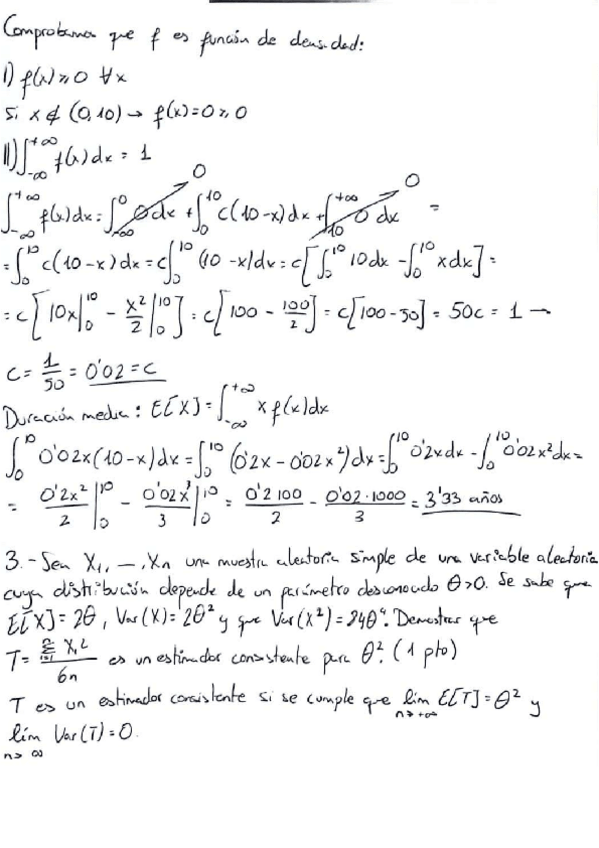 Comprobamos que f es función de densidad:
I) f(x) ≥ 0 ∀x
Si x ∉ (0,10) → f(x)=0 ≥ 0
II) ∫_{-∞}^{+∞} f(x)dx = 1
∫_{-∞}^{+∞} f(x)dx = ∫_{-∞}^{0} 0dx → 0 + ∫_{0}^{10} c(10-x)dx + ∫_{10}^{+∞} 0 dx → 0 =
= ∫_{0}^{10} c(10-x)dx = c∫_{0}^{10} (10-x)dx = c[∫_{0}^{10} 10dx - ∫_{0}^{10} xdx] =
= c[10x|_{0}^{10} - x²/2|_{0}^{10}] = c[100 - 100/2] = c[100-50] = 50c = 1 →
c = 1/50 = 0'02 = c
Duración media: E[X] = ∫_{-∞}^{+∞} x f(x)dx
∫_{0}^{10} 0'02x(10-x)dx = ∫_{0}^{10} (0'2x - 0'02x²)dx = ∫_{0}^{10} 0'2xdx - ∫_{0}^{10} 0'02x²dx =
= 0'2x²/2|_{0}^{10} - 0'02x³/3|_{0}^{10} = 0'2·100/2 - 0'02·1000/3 = 3'33 años
3.- Sea X₁, —, Xn una muestra aleatoria simple de una variable aleatoria
cuya distribución depende de un parámetro desconocido θ>0. Se sabe que
E[X]=2θ, Var(X)=2θ² y que Var(X²)=84θ⁴. Demostrar que
T = Σ_{i=1}^{n} Xi²/6n es un estimador consistente para θ². (1 pto)
T es un estimador consistente si se cumple que lím_{n→+∞} E[T]=θ² y
lím_{n→∞} Var(T)=0.